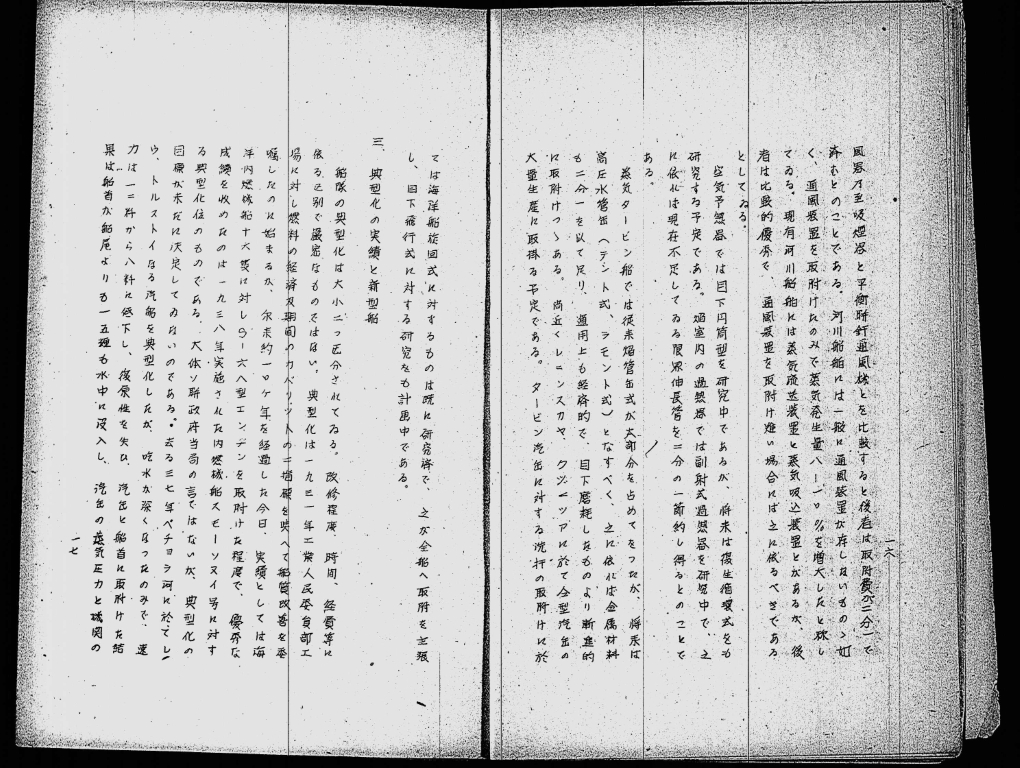 一六
風器乃至吸煙器と平衡聯針通風機とを比較すると後者は取附費が二分一で
済むとのことである。河川船舶には一般に通風装置が存しないものゝ如
く、通風装置を取附けたのみで蒸気発生量八―一〇％を増大したと称し
てゐる。現有河川船舶には蒸気放送装置と蒸気吸込装置とがあるが、後
者は比較的優秀で、通風装置を取附け難い場合には之に依るべきである
としてゐる。
空気予熱器では目下円筒型を研究中であるが、将来は復生循環式をも
研究する予定である。烟室内の過熱器では副射式過熱器を研究中で、之
に依れば現在不足してゐる限界伸長管を二分の一節約し得るとのことで
ある。
蒸気タービン船では従来焔管缶式が大部分を占めてをつたが、将来は
高圧水管缶（テント式、ラモント式）となすべく、之に依れば金属材料
も二分一を以て足り、運用上も経済的で、目下磨耗したものより漸進的
に取附けつゝある。尚近くレニンスカヤ、クズニツアに於て全型汽缶の
大量生産に取掛る予定である。タービン汽缶に対する洗滌の取附けに於
ては海洋船旋回式に対するものは既に研究済で、之が全船へ取附を主張
し、目下飛行式に対する研究をも計画中である。
三、典型化の実績と新型船
船隊の典型化は大小二つ区分されてゐる。改修程度、時間、経費等に
依る区別で厳密なものではない。典型化は一九三一年工業人民委員部工
場に対し燃料の経済及期間のカバリツトの二指標を与へて船質改善を委
嘱したのに始まるが、爾来約一〇ケ年を経過した今日、実績としては海
洋内燃機船十六隻に対し〇―六八型エンヂンを取附けた程度で、優秀な
成績を収めたのは一九三八年実施された内燃機船スモーリヌイ号に対す
る典型化位のものである。大体ソ聯政府当局の言ではないが、典型化の
目標が未だに決定してゐないのである。去る三七年ペチヨラ河に於てレ
ウ、トルストイなる汽船を典型化したが、吃水が深くなつたのみで、速
力は一二粁から八粁に低下し、復原性を失ひ、汽缶と船首に取附けた結
果は船首が船尾よりも一五糎も水中に没入し、汽缶の蒸気圧力と機関の
一七